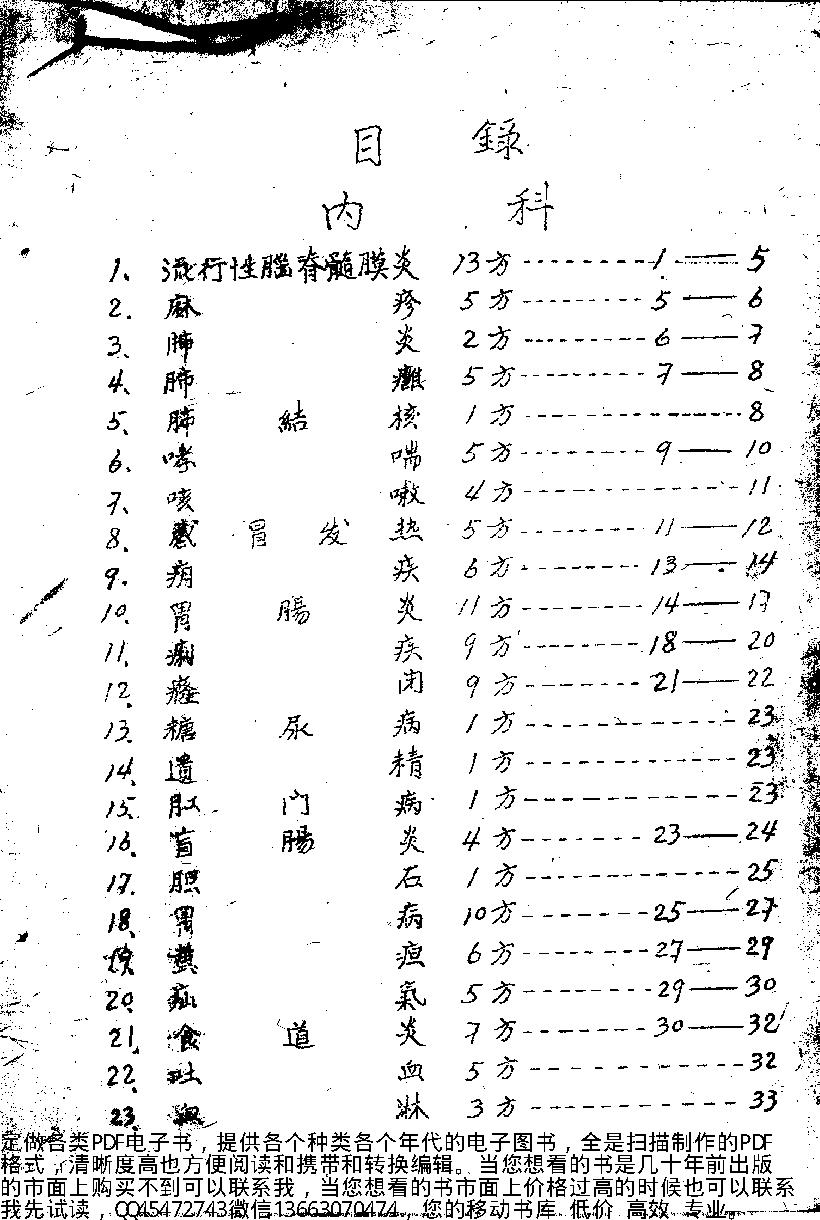 目 錄
内 科
1、流行性腦脊髓膜炎 13方--------1——5
2. 麻疹 5方--------5——6
3、肺炎 2方--------6——7
4、肺癰 5方--------7——8
5、肺結核 1方--------8
6、哮喘 5方--------9——10
7、咳嗽 4方--------11
8、感冒发热 5方--------11——12
9. 疾 6方--------13——14
10. 胃腸炎 11方--------14——17
11. 痢疾 9方--------18——20
12. 癃闭 9方--------21——22
13. 糖尿病 1方--------23
14. 遺精 1方--------23
15. 肛门病 1方--------23
16. 盲腸炎 4方--------23——24
17. 胆石 1方--------25
18. 胃病 10方--------25——27
黄疸 6方--------27——29
20. 疝氣 5方--------29——30
21. 食道炎 7方--------30——32
22. 吐血 5方--------32
23. 血淋 3方--------33
定做各类PDF电子书，提供各个种类各个年代的电子图书，全是扫描制作的PDF
格式，清晰度高也方便阅读和携带和转换编辑。当您想看的书是几十年前出版
的市面上购买不到可以联系我，当您想看的书市面上价格过高的时候也可以联系
我先试读，QQ45472743微信13663070474，您的移动书库 低价 高效 专业。